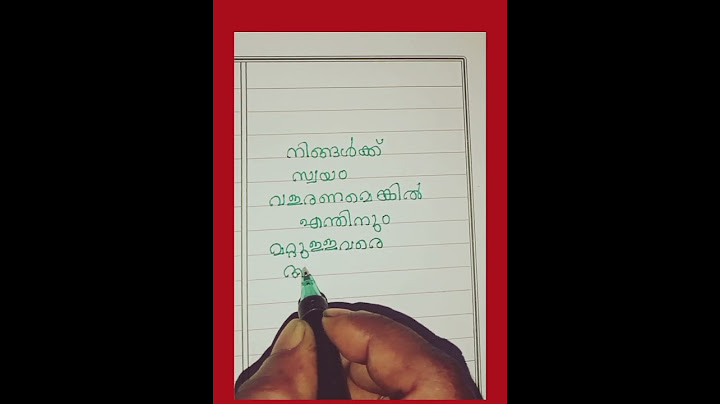 നിങ്ങൾക്ക്
സ്വയം
വളരണമെങ്കിൽ
എന്തിനും
മറ്റുള്ളവരെ